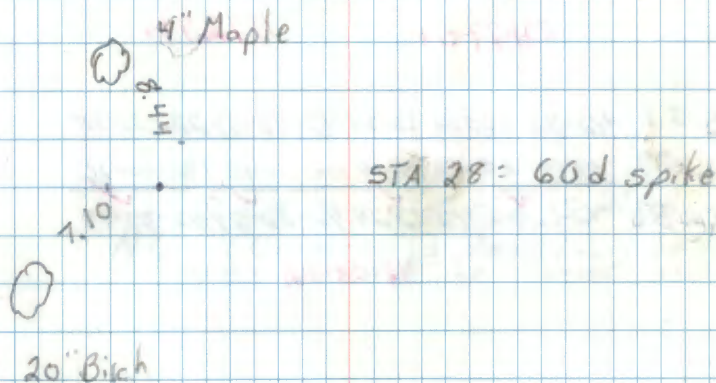 4" Maple
8.44
STA 28 = 60d spike
7.10
20" Birch